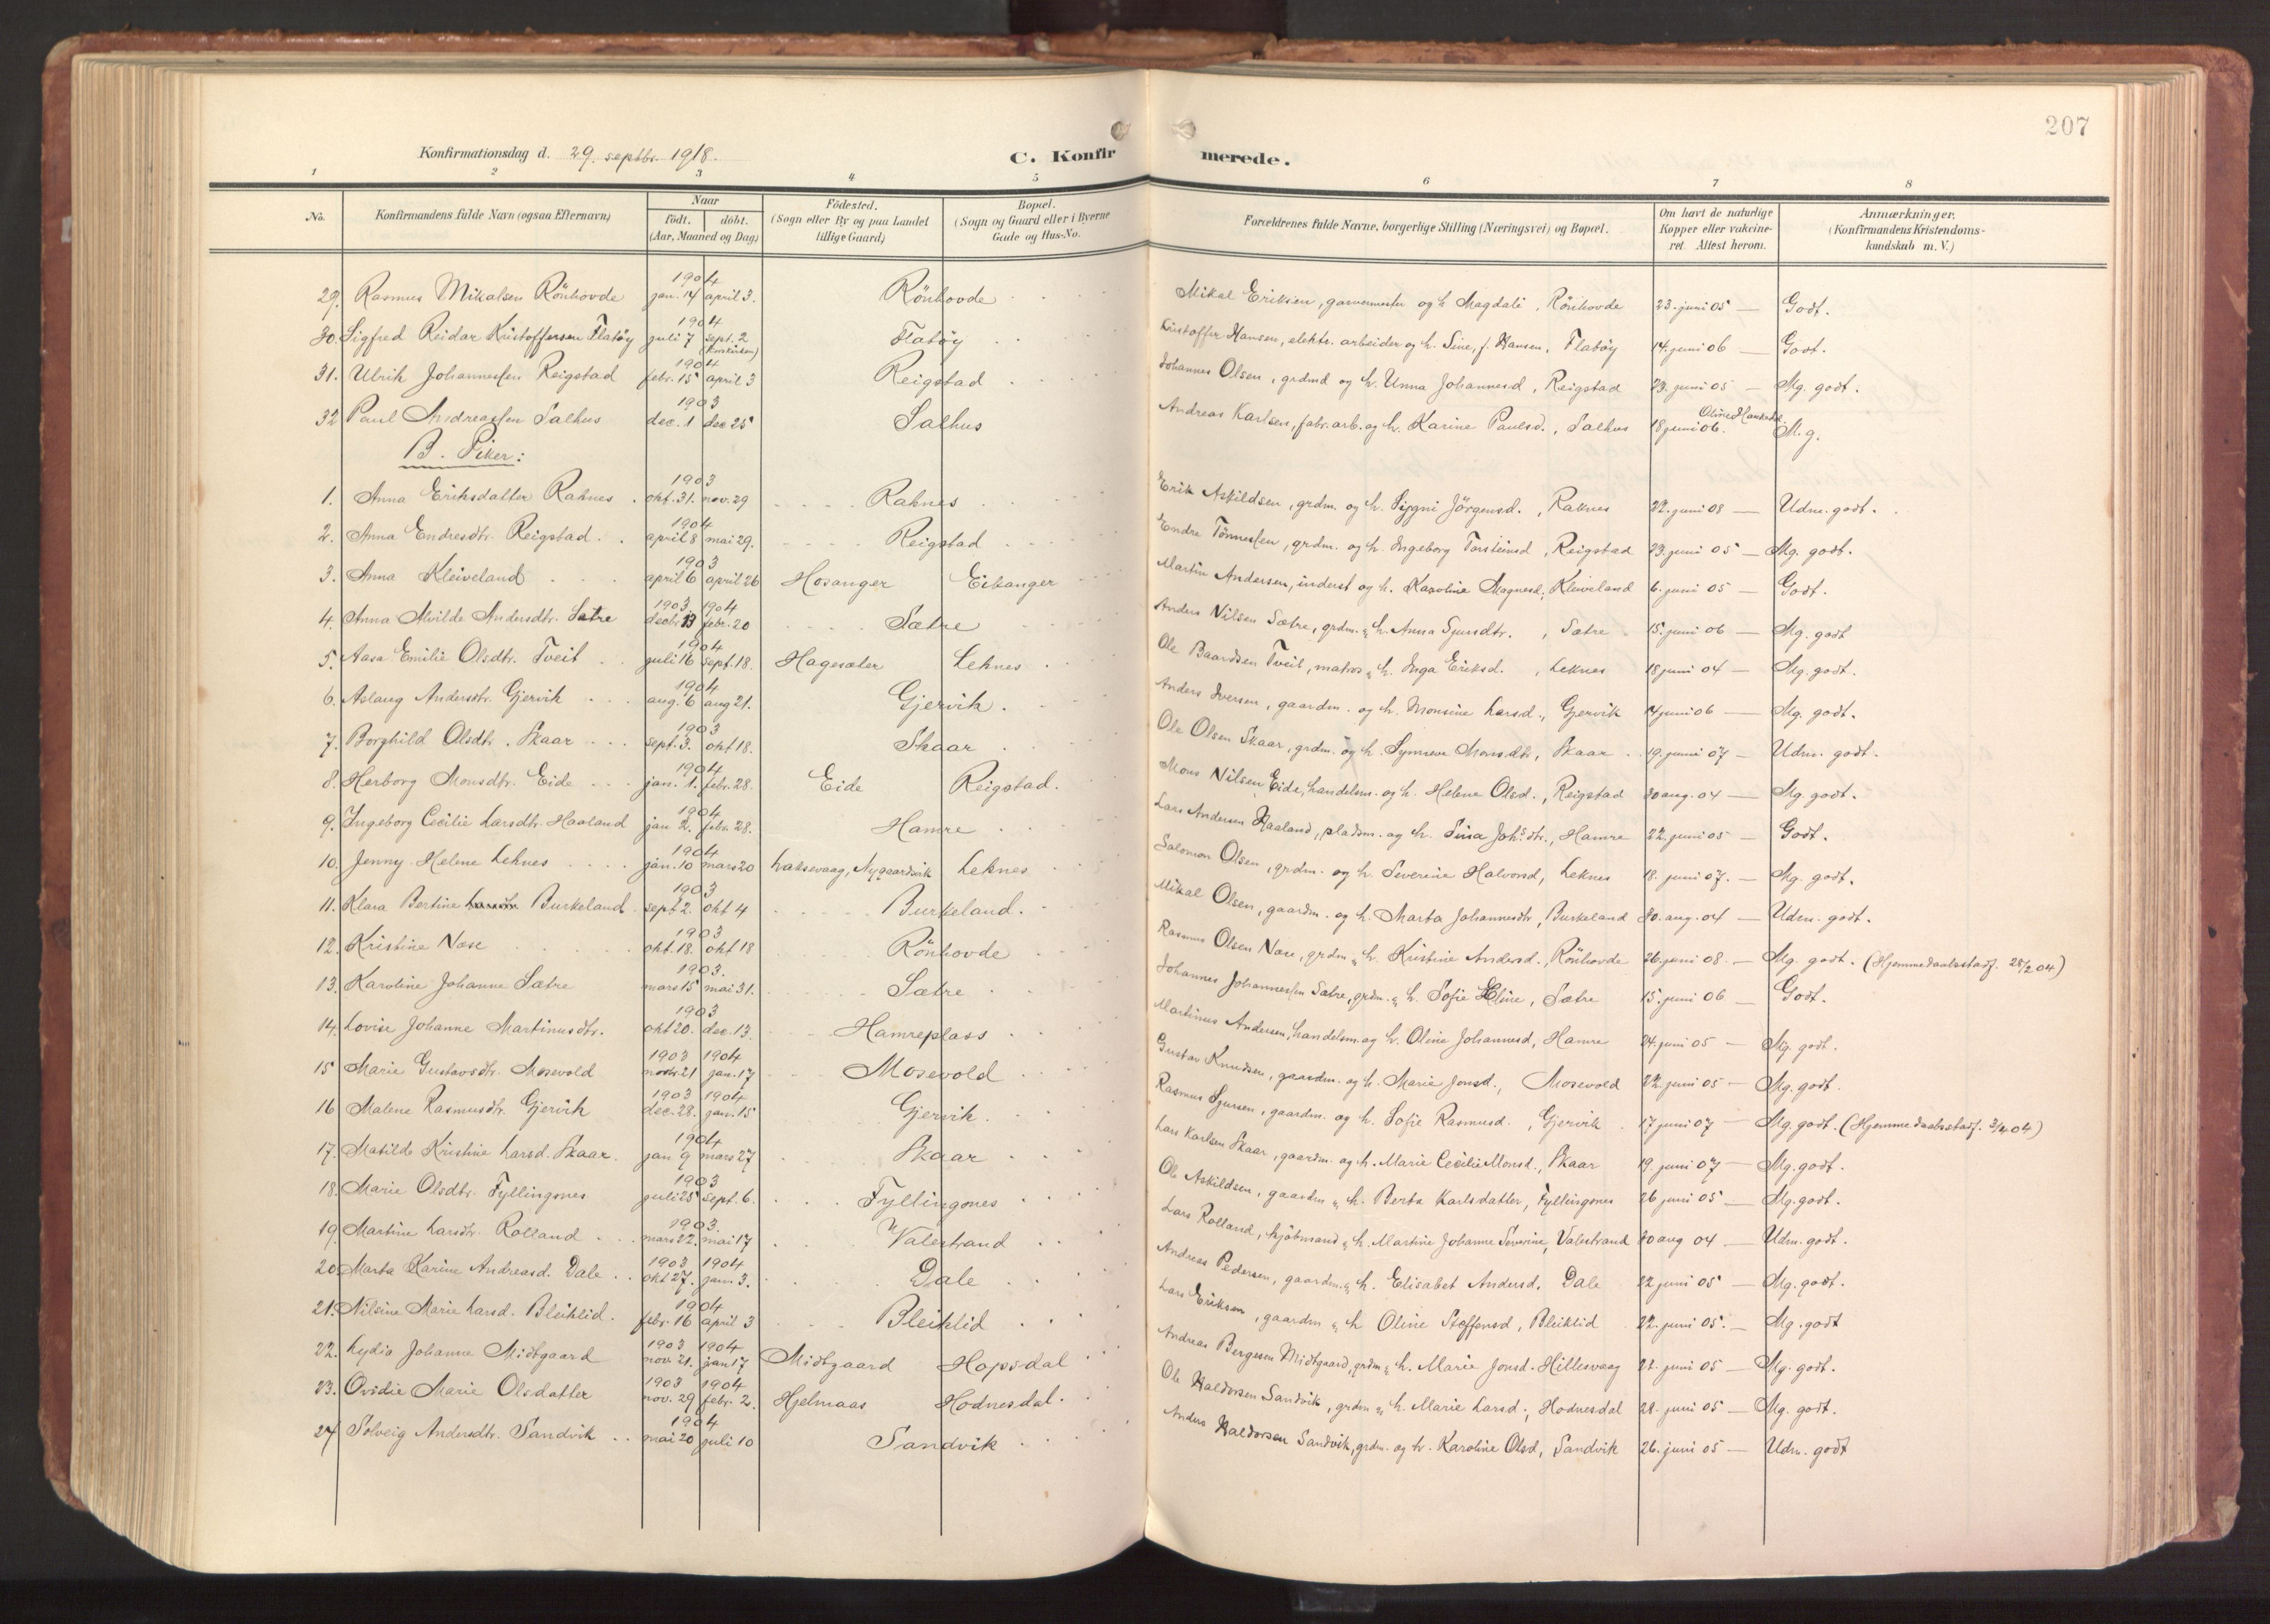 207
Konfirmationsdag d. 29. septbr. 1918.
C. Konfirmerede.
1 2 3 4 5 6 7 8
No. Konfirmandens fulde Navn (ogsaa Efternavn) Naar født. døbt. (Aar, Maaned og Dag) Fødested. (Sogn eller By og paa Landet tillige Gaard) Bopæl. (Sogn og Gaard eller i Byerne Gade og Hus-No. Forældrenes fulde Navne, borgerlige Stilling (Næringsvei) og Bopæl. Om havt de naturlige Kopper eller vaccineret. Attest herom. Anmærkninger. (Konfirmandens Kristendomskundskab m. V.)
29. Rasmus Mikalsen Rönhovde 1904 jan. 14 april 3. Rönhovde Mikal Eriksen, garvermester og h. Magdali, Rönhovde 23. juni 05 — Godt.
30. Sigfred Reidar Kristoffersen Flatöy 1904 juli 7 sept. 2 (Korskirken) Flatöy Kristoffer Hansen, elektr. arbeider og h. Sine, f. Hansen, Flatöy 14. juni 06 — Godt.
31. Ulrik Johannessen Reigstad 1904 febr. 15 april 3 Reigstad Johannes Olsen, grdmd og h. Unna Johannesd, Reigstad 23. juni 05 — Mg. godt.
32 Paul Andreassen Salhus 1903 dec. 1 dec 25 Salhus Andreas Karlsen, fabr. arb. og h. Karine Paulsd., Salhus 18 juni 06. M.g.
B. Piker:
1. Anna Eriksdatter Raknes 1903 okt. 31. nov. 29 Raknes Erik Askildsen, grdm. og h. Siggni Jörgensd., Raknes 22. juni 08 — Udm. godt.
2. Anna Endresdtr. Reigstad 1904 april 8 mai 29. Reigstad Endre Tönnessen, grdm. og h. Ingeborg Torsteinsd, Reigstad 23. juni 05 — Mg. godt.
3. Anna Kleiveland 1903 april 6 april 26 Hosanger Eikanger Martin Andersen, inderst og h. Karoline Magnesd, Kleiveland 6. juni 05 — Godt.
4. Anna Alvilde Andersdtr. Sætre 1903 1904 decbr. 13 febr. 20 Sætre Anders Nilsen Sætre, grdm. " h. Anna Sjursdtr., Sætre 15. juni 06 — Mg. godt
5. Aasa Emilie Olsdtr. Tveit 1904 juli 16 sept. 18. Hagesæter Leknes Ole Baardsen Tveit, matros " h. Inga Eriksd., Leknes 18 juni 04 — Mg. godt.
6. Aslaug Andersdtr. Gjervik 1904 aug. 6 aug 21. Gjervik. Anders Iversen, gaardm. og h. Monsine Larsd., Gjervik 14 juni 06 — Mg. godt.
7. Borghild Olsdtr. Skaar 1903 sept. 3. okt 18. Skaar Ole Olsen Skaar, grdm. og h. Synneve Monsdtr, Skaar 19. juni 07 — Udm. godt.
8. Herborg Monsdtr. Eide 1904 jan. 1. febr. 28. Eide Reigstad. Mons Nilsen Eide, handelsm. og h. Helene Olsd., Reigstad 30 aug. 04 — Mg. godt.
9. Ingeborg Cecilie Larsdtr. Haaland 1904 jan 2. febr. 28. Hamre Lars Andersen Haaland, pladsm. og h. Sina Joh.s dtr., Hamre 22. juni 05 — Godt.
10. Jenny Helene Leknes 1904 jan. 10 mars 20 Laksevaag, Nygaardsvik Leknes Salomon Olsen, grdm. og h. Severine Halvorsd, Leknes 18. juni 07. — Mg. godt.
11. Klara Bertine Burkeland 1903 sept 2. okt 4 Burkeland. Mikal Olsen, gaardm. og h. Marta Johannesdtr, Burkeland 30. aug. 04 — Udm. godt.
12. Kristine Nase 1903 okt. 18. okt 18 Rönhovde Rasmus Olsen Nase, grdm " h. Kristine Andersd., Rönhovde 26. juni 08. — Mg. godt. (Hjemmedaabstadf. 28/2 04)
13. Karoline Johanne Sætre 1903. mars 15 mai 31. Sætre Johannes Johannessen Sætre, grdm. " h. Sofie Eline, Sætre 15. juni 06 — Godt.
14. Lovise Johanne Martinusdtr. 1903 okt 20. dec. 13. Hamreplass Martinus Andersen, handelsm. og h. Oline Johannesd, Hamre 24. juni 05 — Mg. godt.
15 Marie Gustavsdtr. Mosevold 1903 1904 novbr 21 jan. 17 Mosevold Gustav Knudsen, gaardm. og h. Marie Jonsd., Mosevold 22. juni 05 — Mg. godt.
16 Malene Rasmusdtr. Gjervik 1903 1904 dec. 28. jan. 15 Gjervik. Rasmus Sjursen, gaardm. og h. Sofie Rasmusd., Gjervik 17 juni 07 — Mg. godt. (Hjemmedaabstadf. 3/4 04)
17. Matilde Kristine Larsd. Skaar. 1904 jan 9 mars 27 Skaar Lars Karlsen Skaar, gaardm. og h. Marie Cecilie Monsd., Skaar 19. juni 07 — Mg. godt.
18. Marie Olsdtr. Fyllingsnes 1903 juli 25 sept. 6. Fyllingsnes Ole Askildsen, gaardm " h. Berta Karlsdatter, Fyllingsnes 26 juni 05 — Mg. godt.
19. Martine Larsdtr. Rolland 1903. mars 22. mai 17 Valestrand Lars Rolland, kjöbmand " h. Martine Johanne Severine, Valestrand 30 aug 04 — Udm. godt.
20. Marta Karine Andreasd. Dale 1903 1904 okt 27. jan. 3. Dale Andreas Pedersen, gaardm. " h. Elisabet Andersd. Dale 22 juni 05 — Mg. godt.
21. Nilsine Marie Larsd. Bleiklid. 1904 febr. 16 april 3 Bleiklid Lars Eriksen, gaardm " h Oline Steffensd, Bleiklid 22. juni 05. — Mg. godt
22. Lydia Johanne Midtgaard 1903 1904 nov. 21. jan 17 Midtgaard Hopsdal Andreas Bergesen Midtgaard, grdm " h. Marie Jonsd. Hillesvaag 22. juni 05 — Mg. godt.
23. Ovidie Marie Olsdatter 1903 1904 nov. 29 febr. 2. Hjelmaas Hodnesdal. Ole Haldorsen Sandvik, grdm " h. Marie Larsd., Hodnesdal 28. juni 05 — Mg. godt.
24 Solveig Andersdtr. Sandvik 1904 mai 20 juli 10 Sandvik Anders Haldorsen Sandvik, grdm. og h. Karoline Olsd, Sandvik 26. juni 05 — Udm. godt